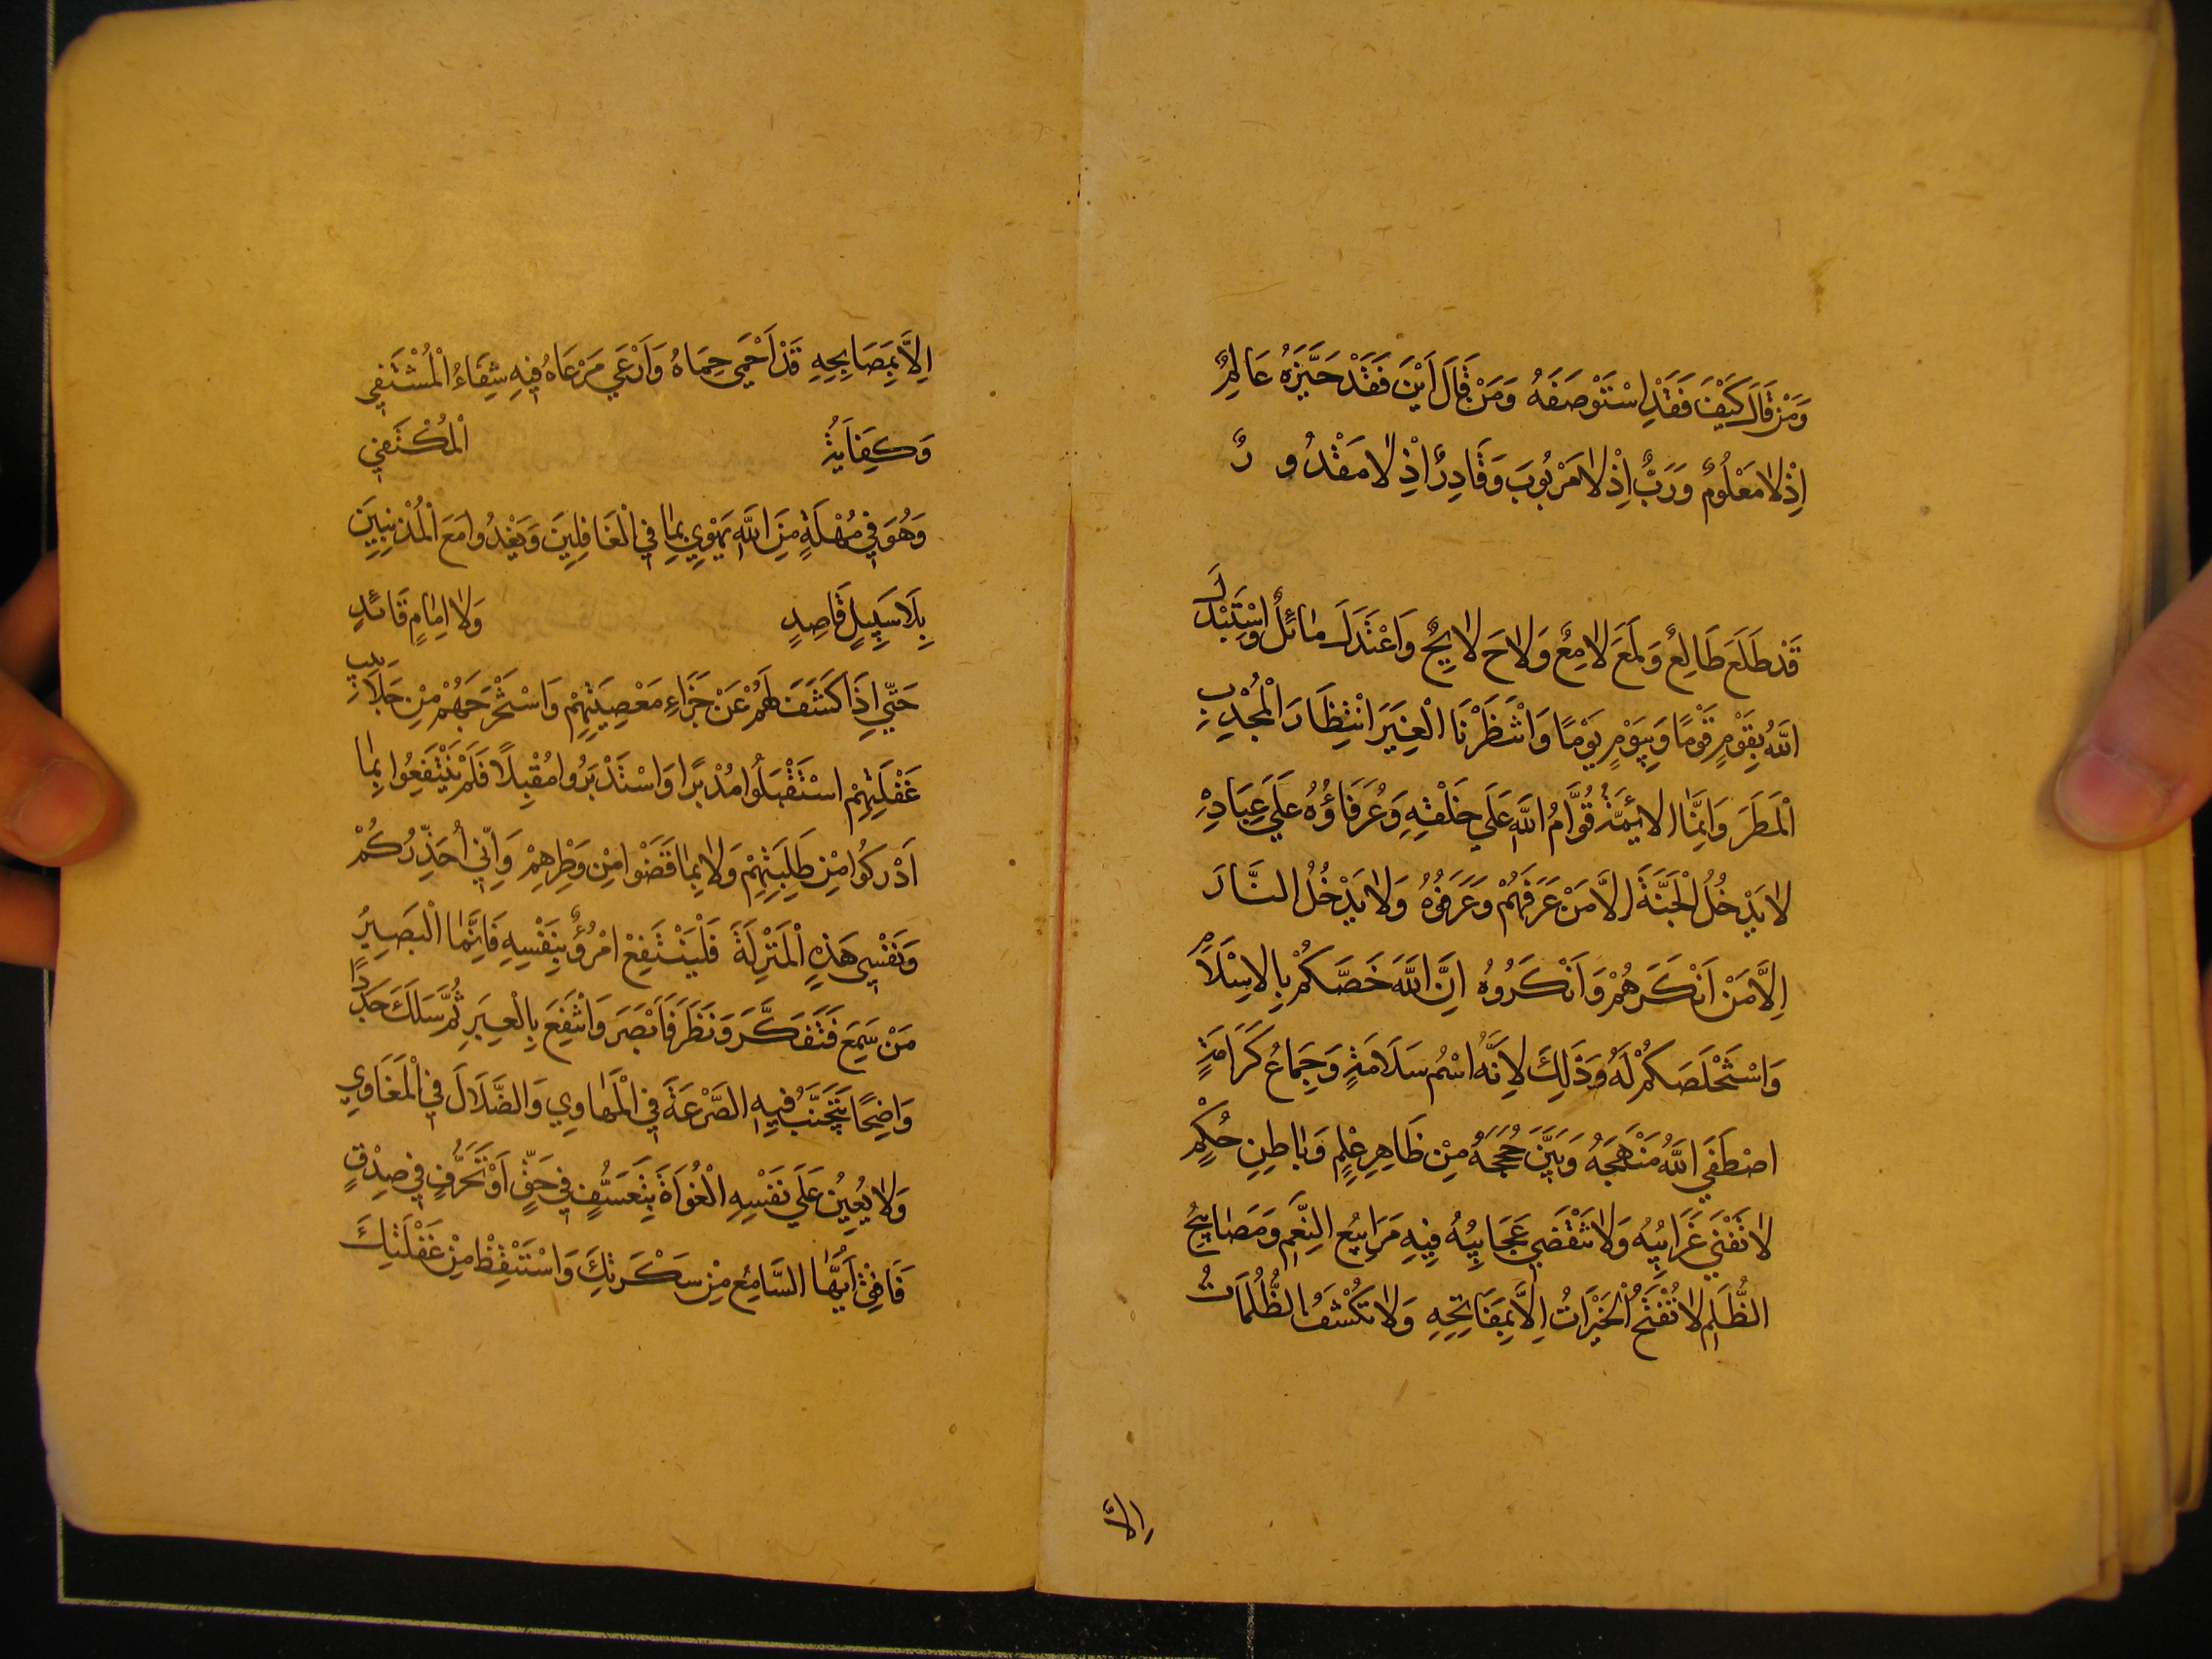 وَمَنْ قَالَ كَيْفَ فَقَدِ اسْتَوْصَفَهُ وَمَنْ قَالَ اَيْنَ فَقَدْ حَيَّزَهُ عَالِمٌ
اِذْ لَا مَعْلُومٌ وَرَبٌّ اِذْ لَا مَرْبُوبَ وَقَادِرٌ اِذْ لَا مَقْدُورٌ
قَدْ طَلَعَ طَالِعٌ وَلَمَعَ لَامِعٌ وَلَاحَ لَايِحٌ وَاعْتَدَلَ مَائِلٌ وَاسْتَبْدَلَ
اللهُ بِقَوْمٍ قَوْمًا وَبِيَوْمٍ يَوْمًا وَانْتَظَرْنَا الْغِيَرَ انْتِظَارَ الْمُجْدِبِ
الْمَطَرَ وَاِنَّمَا الْائِمَّةُ قُوَّامُ اللهِ عَلَي خَلْقِهِ وَعُرَفَاؤُهُ عَلَي عِبَادِهِ
لَا يَدْخُلُ الْجَنَّةَ اِلَّا مَنْ عَرَفَهُمْ وَعَرَفُوهُ وَلَا يَدْخُلُ النَّارَ
اِلَّا مَنْ اَنْكَرَهُمْ وَاَنْكَرُوهُ اِنَّ اللهَ خَصَّكُمْ بِالْاِسْلَامِ
وَاسْتَخْلَصَكُمْ لَهُ وَذٰلِكَ لِاَنَّهُ اسْمُ سَلَامَةٍ وَجِمَاعُ كَرَامَةٍ
اصْطَفَي اللهُ مَنْهَجَهُ وَبَيَّنَ حُجَجَهُ مِنْ ظَاهِرِ عِلْمٍ وَبَاطِنِ حُكْمٍ
لَا تَفْنَي غَرَايِبُهُ وَلَا تَنْقَضِي عَجَايِبُهُ فِيهِ مَرَابِيعُ النِّعَمِ وَمَصَابِيحُ
الظُّلَمِ لَا تُفْتَحُ الْخَيْرَاتُ اِلَّا بِمَفَاتِحِهِ وَلَا تُكْشَفُ الظُّلُمَاتُ
اِلَّا
اِلَّا بِمَصَابِحِهِ قَدْ اَحْمَي حِمَاهُ وَاَرْعَي مَرْعَاهُ فِيهِ شِفَاءُ الْمُشْتَفِي
وَكِفَايَةُ الْمُكْتَفِي
وَهُوَ فِي مُهْلَةٍ مِنَ اللهِ يَهْوِي بِمَا فِي الْغَافِلِينَ وَيَغْدُوا مَعَ الْمُذْنِبِينَ
بِلَا سَبِيلٍ قَاصِدٍ وَلَا اِمَامٍ قَائِدٍ
حَتَّي اِذَا كَشَفَ لَهُمْ عَنْ جَزَاءِ مَعْصِيَتِهِمْ وَاسْتَخْرَجَهُمْ مِنْ جَلَابِيبِ
غَفْلَتِهِمْ اسْتَقْبَلُوا مُدْبِرًا وَاسْتَدْبَرُوا مُقْبِلًا فَلَمْ يَنْتَفِعُوا بِمَا
اَدْرَكُوا مِنْ طَلِبَتِهِمْ وَلَا بِمَا قَضَوْا مِنْ وَطَرِهِمْ وَاِنِّي اُحَذِّرُكُمْ
وَنَفْسِي هَذِهِ الْمَنْزِلَةَ فَلْيَنْتَفِعْ امْرُؤٌ بِنَفْسِهِ فَاِنَّمَا الْبَصِيرُ
مَنْ سَمِعَ فَتَفَكَّرَ وَنَظَرَ فَاَبْصَرَ وَانْتَفَعَ بِالْعِبَرِ ثُمَّ سَلَكَ جَدَدًا
وَاضِحًا يَتَجَنَّبُ فِيهِ الصَّرْعَةَ فِي الْمَهَاوِي وَالضَّلَالَ فِي الْمَغَاوِي
وَلَا يُعِينُ عَلَي نَفْسِهِ الْغُوَاةَ بِتَعَسُّفٍ فِي حَقٍّ اَوْ تَحَرُّفٍ فِي صِدْقٍ
فَاَفِقْ اَيُّهَا السَّامِعُ مِنْ سَكْرَتِكَ وَاسْتَيْقِظْ مِنْ غَفْلَتِكَ